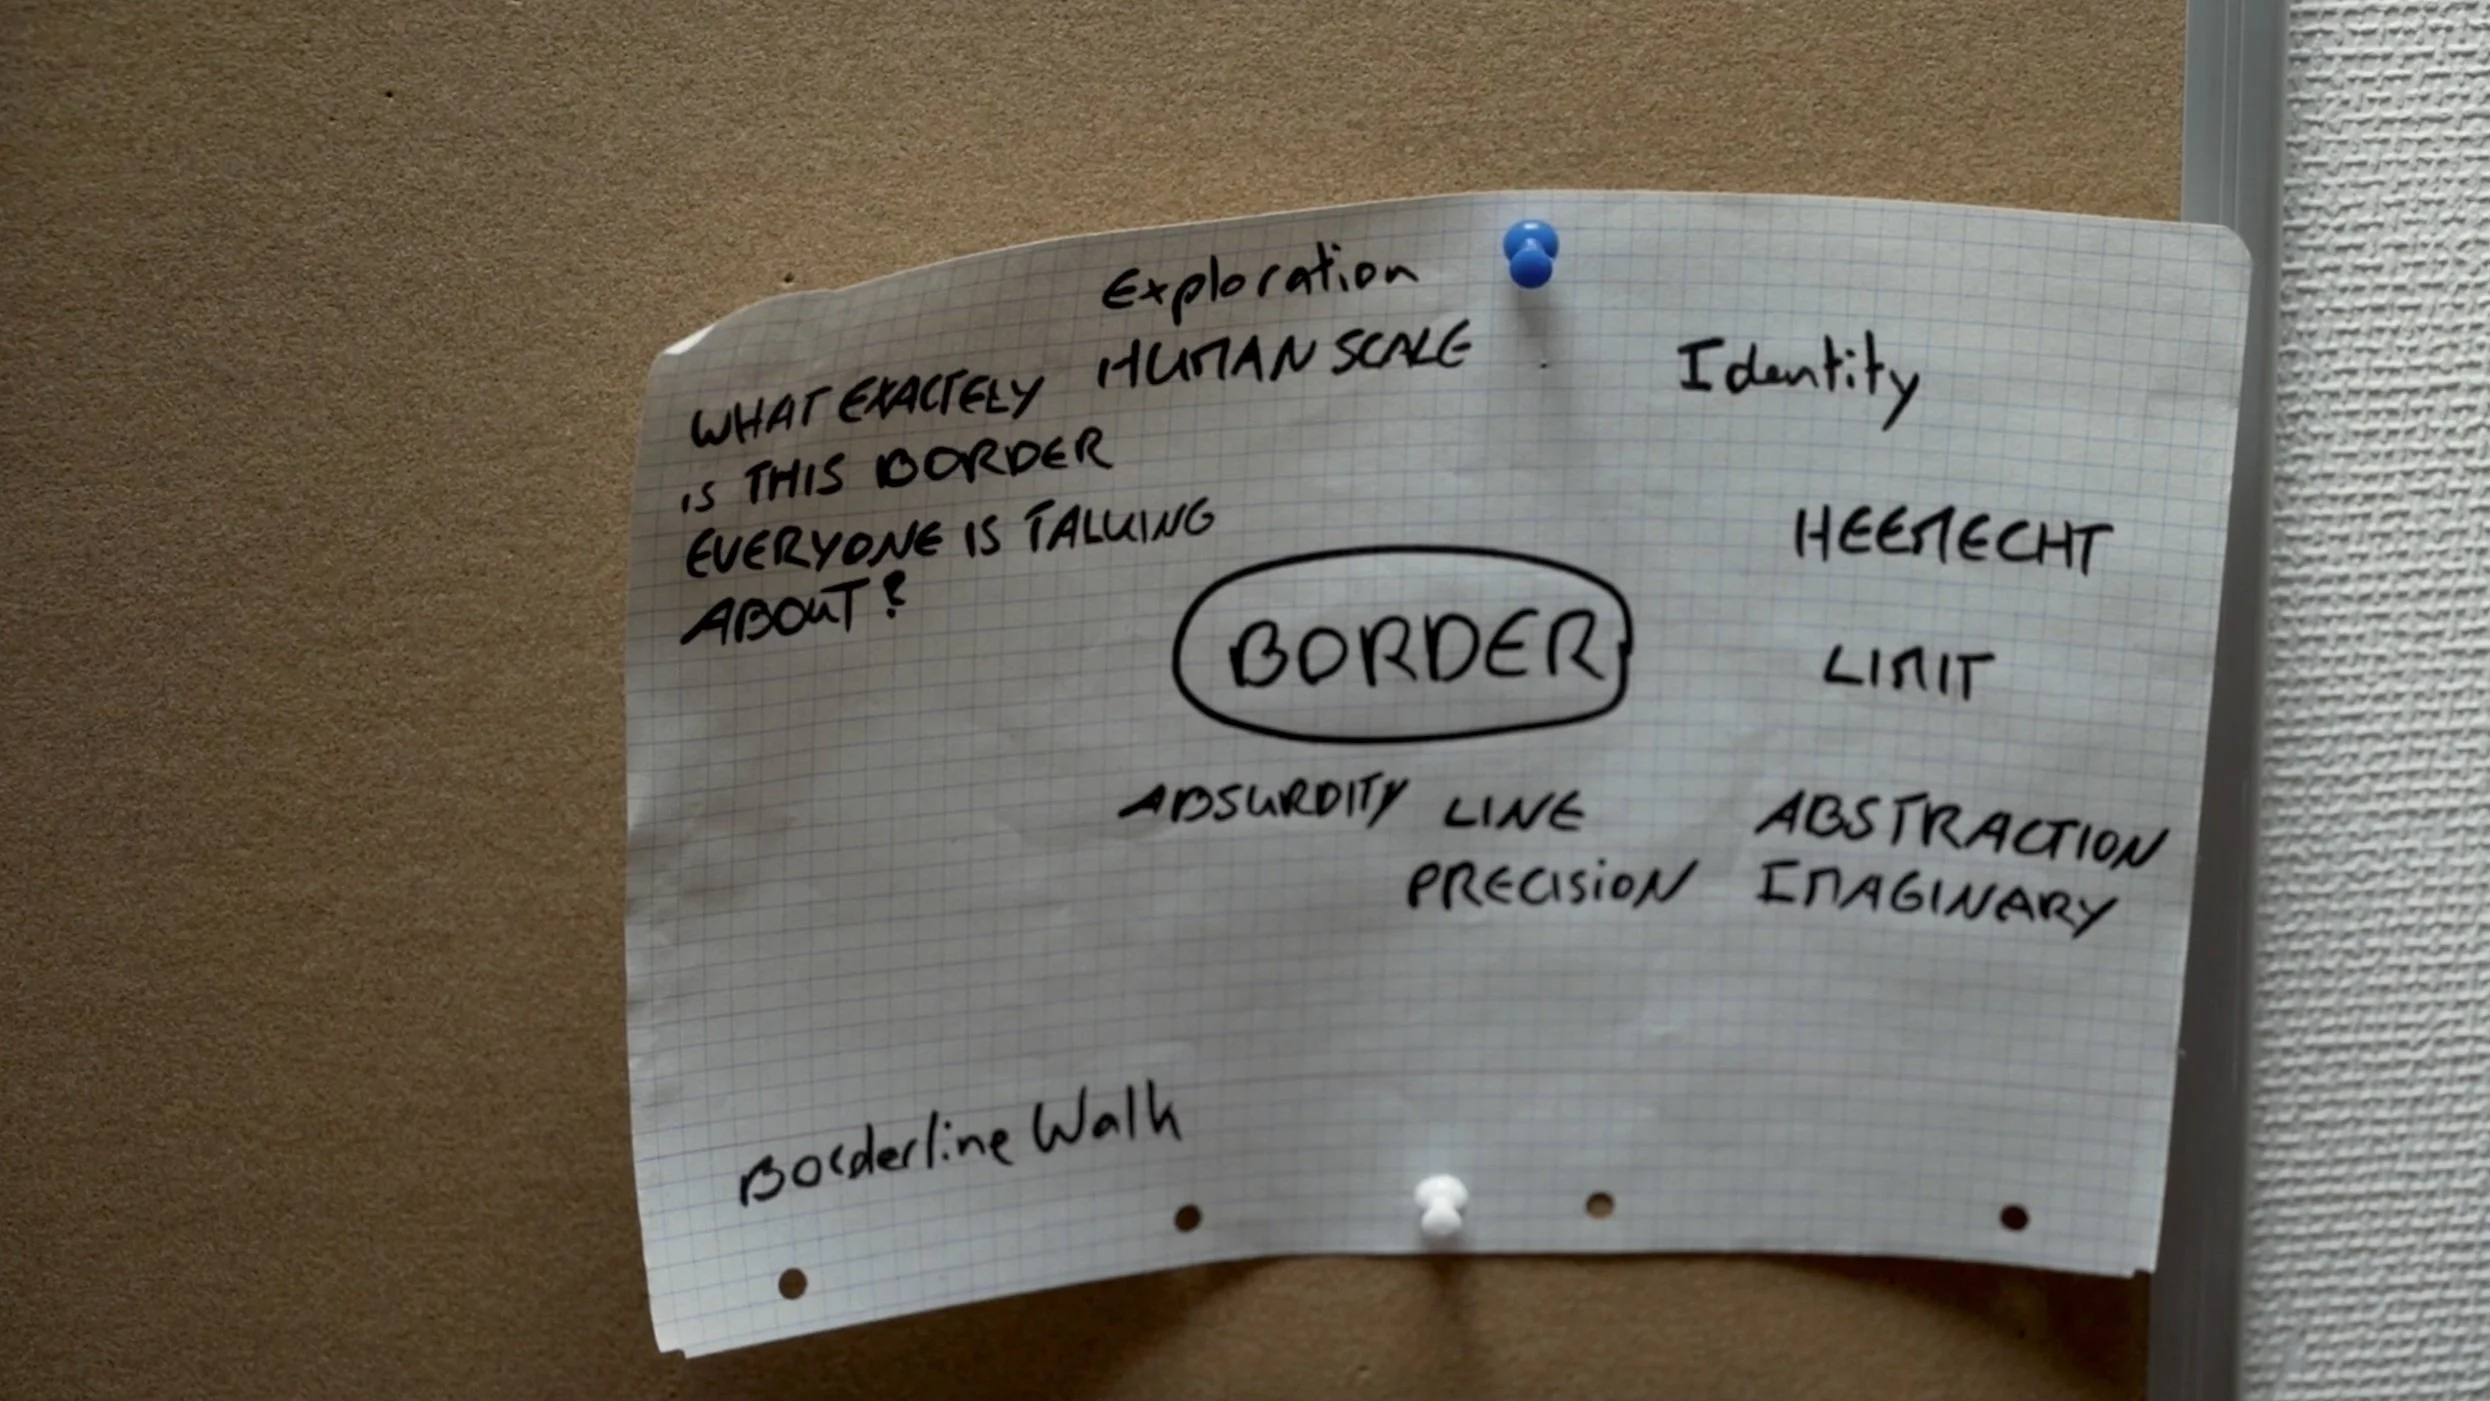 Exploration
HUMAN SCALE
Identity
WHAT EXACTELY
IS THIS BORDER
EVERYONE IS TALKING
ABOUT?
HEEMECHT
BORDER
LIMIT
ABSURDITY
LINE
PRECISION
ABSTRACTION
IMAGINARY
Borderline Walk